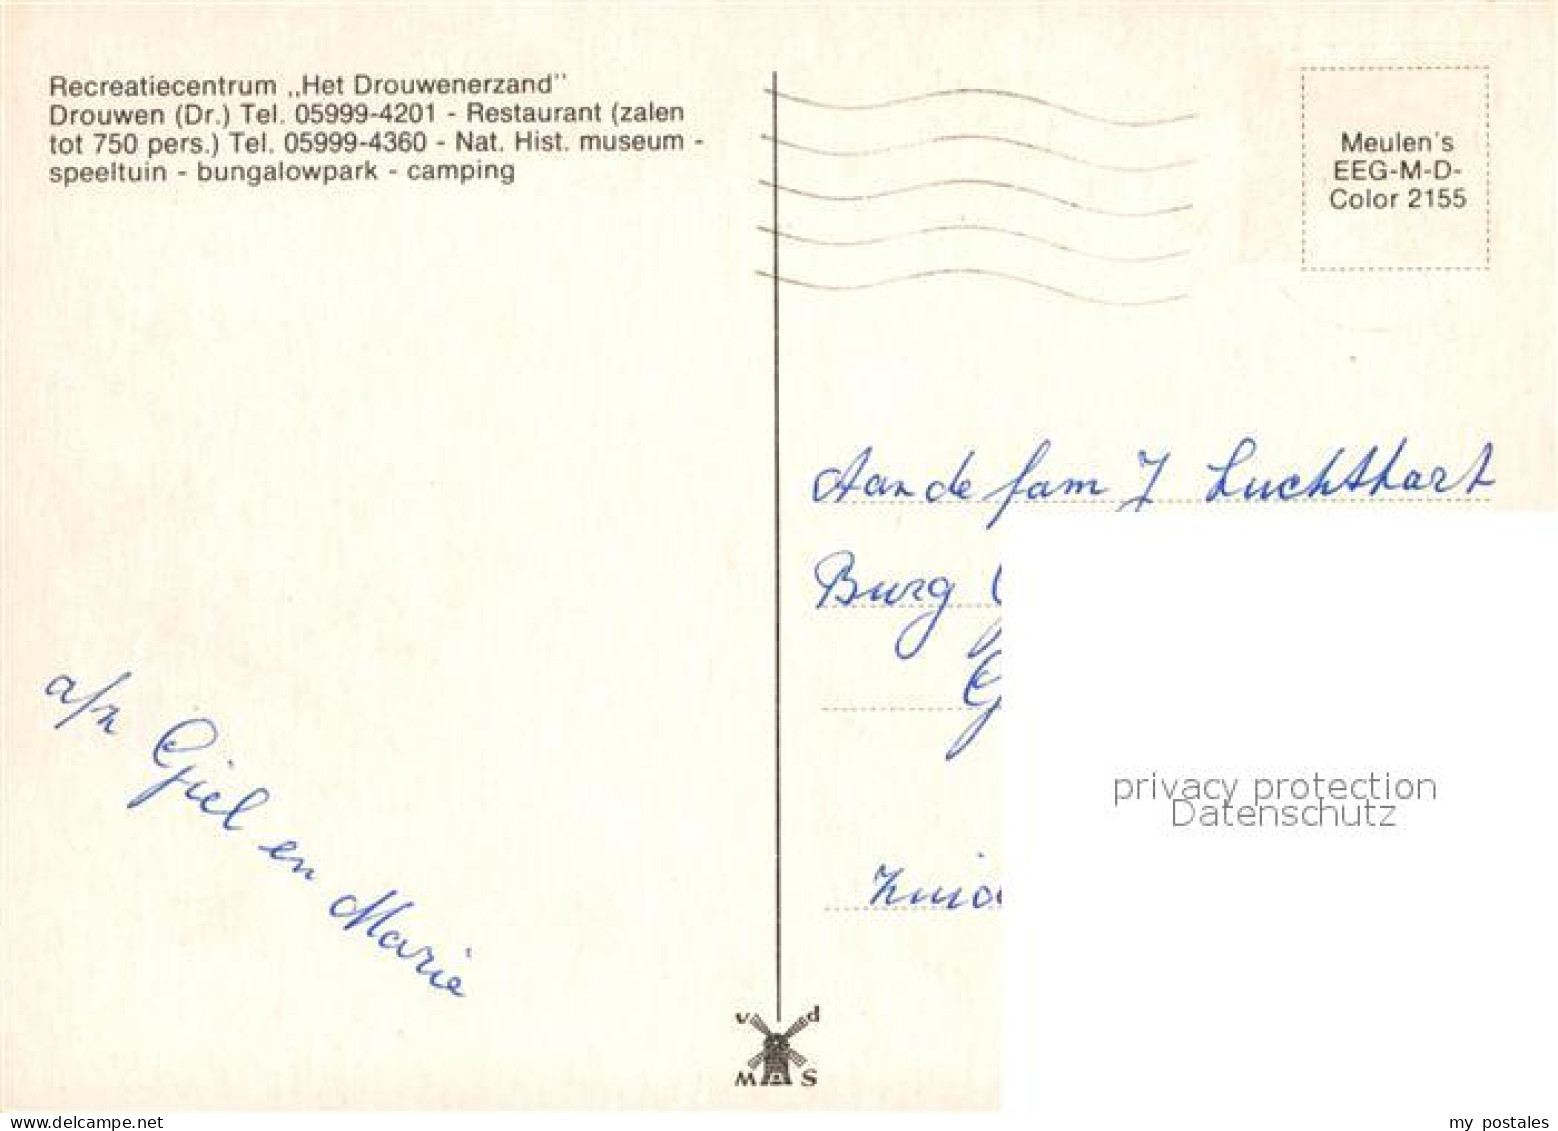 Recreatiecentrum „Het Drouwenerzand"
Drouwen (Dr.) Tel. 05999-4201 - Restaurant (zalen
tot 750 pers.) Tel. 05999-4360 - Nat. Hist. museum -
speeltuin - bungalowpark - camping
Meulen's
EEG-M-D-
Color 2155
Aan de fam J Luchthart
Burg
a/z Giel en Marie
privacy protection
Datenschutz
v d
M S
www.delcampe.net
my postales